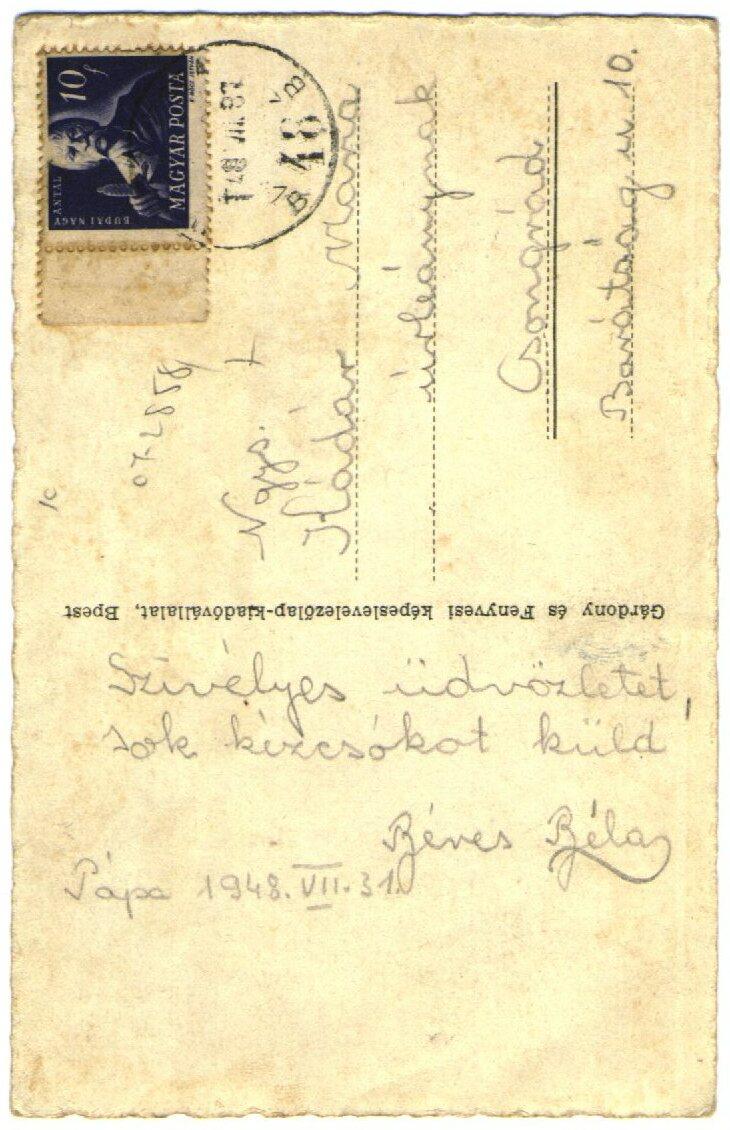 10 f
MAGYAR POSTA
BUDAI NAGY
ANTAL
7B
48
7B
Ngys.
Kádár Mária
úrleánynak
Csongrád
Barátság u 10.
Gárdony és Fenyvesi képeslevelezőlap-kiadóvállalat, Bpest
Szívélyes üdvözletet,
sok kézcsókot küld
Béres Béla
Pápa 1948. VII. 31.